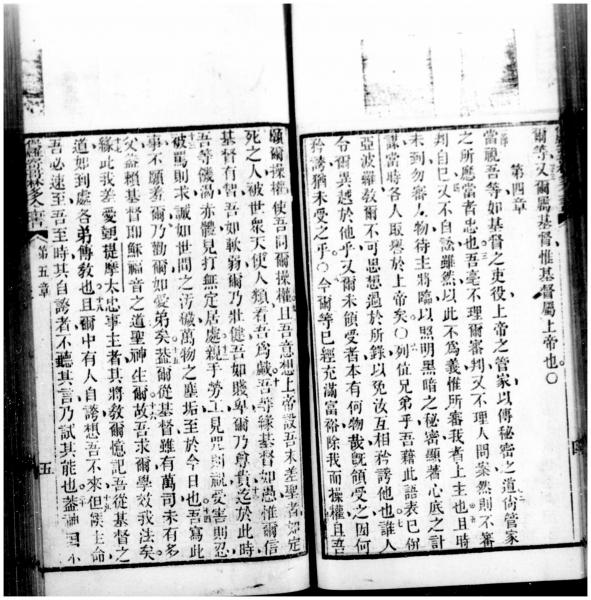 爾等又爾屬基督惟基督屬上帝也〇
第四章
當視吾等如基督之吏役上帝之管家以傳秘密之道尚管家
之所應當者忠也吾毫不理爾審判又不理人問案然則不審
判自己又不自訟雖然以此不為義惟所審我者上主也且時
未到勿審人物待主將臨以照明黑暗之秘密顯著心底之計
謀當時各人取譽於上帝矣〇列位兄弟乎吾藉此語表已併
亞波羅教爾不可思想過於所錄以免汝互相矜誇他也誰人
令爾異過於他乎又爾未領受者本有何物哉既領受之因何
矜誇猶未受之乎〇今爾等已經充滿富裕除我而操權且吾
願爾操權使吾同爾操權且吾意想上帝設吾末差聖者如定
死之人被世衆天使人類看吾為戲吾等緣基督如愚惟爾信
基督有智吾如軟弱爾乃壯健吾如賤卑爾乃尊貴迄於此時
吾等饑渴亦體見打無定居處親手勞工見咒則祝受害則忍
被罵則求誠如世間之污穢萬物之塵垢至於今日也吾寫此
事不願羞爾乃勸爾如愛弟矣蓋爾從基督雖有萬司未有多
父蓋賴基督耶穌福音之道聖神生爾故吾求爾學效我法矣
緣此我差愛甥提摩太忠事主者其將教爾憶記吾從基督之
道如到處各弟傳教也且爾中有人自誇想吾不來但候主命
吾必速至吾至時其自誇者不聽其言乃試其能也蓋
第五章
五